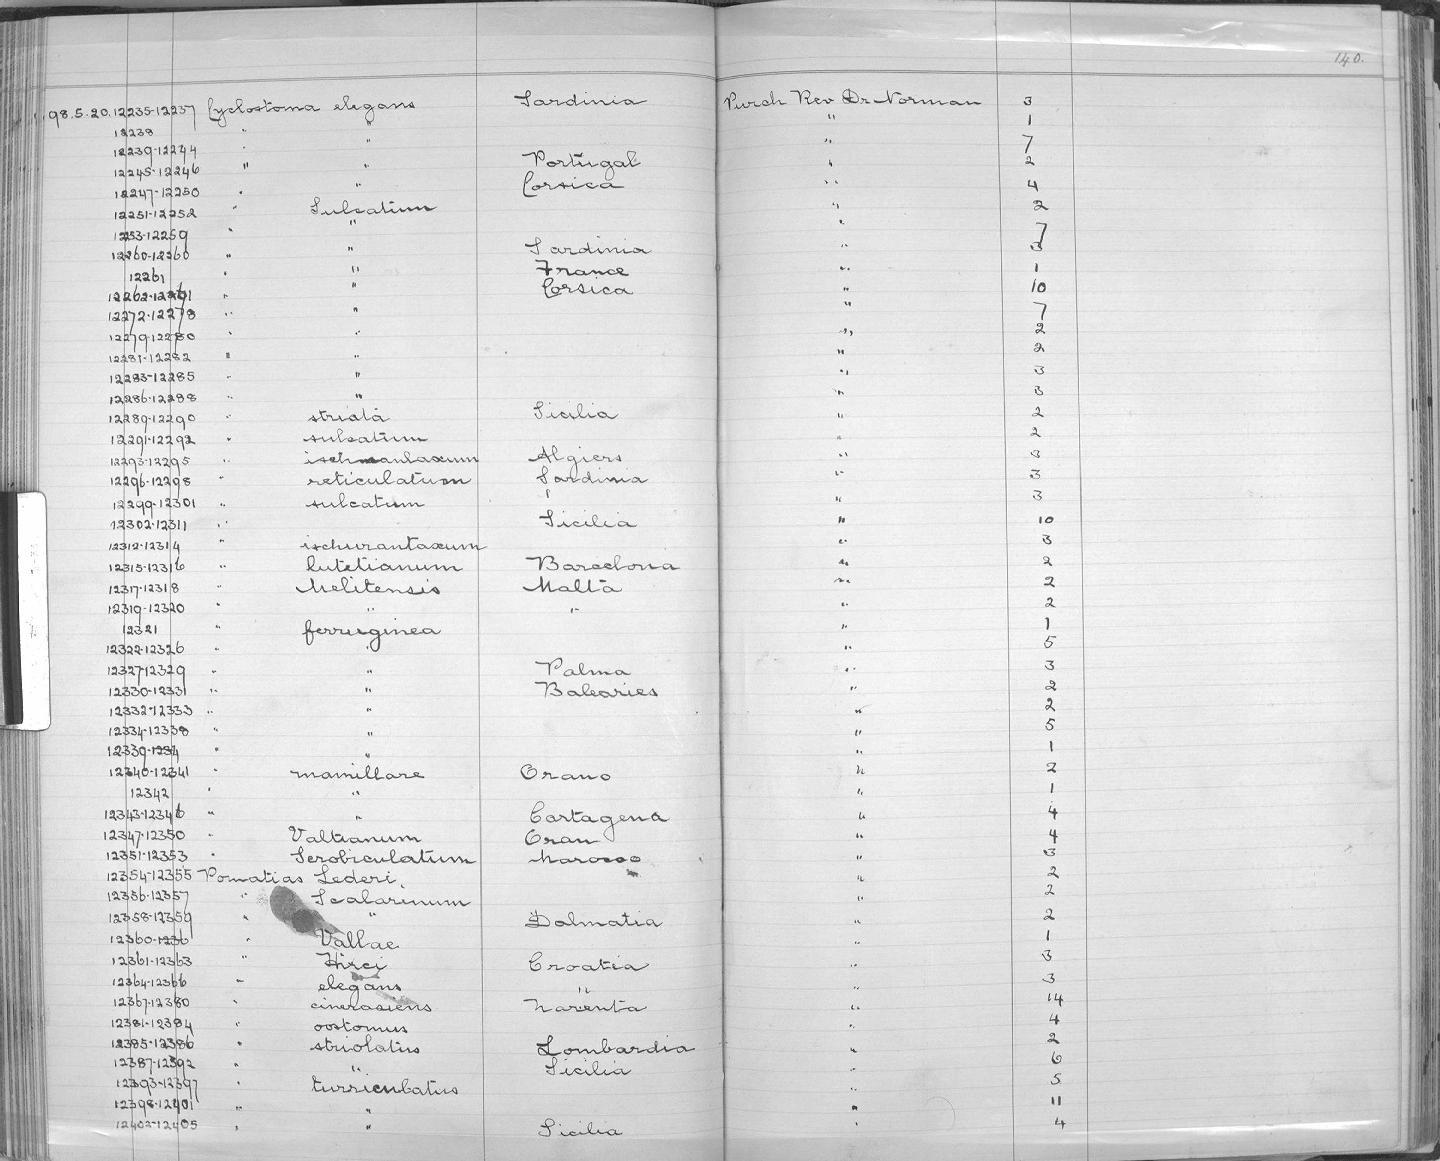 140.
98.5.20.12235-12237 Cyclostoma elegans Sardinia Purch Rev Dr Norman 3
12238 " " " 1
12239-12244 " " " 7
12245-12246 " " Portugal " 2
12247-12250 " " Corsica " 4
12251-12252 " Sulcatum " 2
1253-12259 " " " 7
12260-12260 " " Sardinia " 3
12261 " " France " 1
12262-12271 " " Corsica " 10
12272-12278 " " " 7
12279-12280 " " " 2
12281-12282 " " " 2
12283-12285 " " " 3
12286-12288 " " " 3
12289-12290 " striata Sicilia " 2
12291-12292 " sulcatum " 2
12293-12295 " Algiers " 3
12296-12298 " reticulatum Sardinia " 3
12299-12301 " sulcatum " " 3
12302-12311 " Sicilia " 10
12312-12314 " ischurantaxum " 3
12315-12316 " lutetianum Barcelona " 2
12317-12318 " Melitensis Malta " 2
12319-12320 " " " " 2
12321 " ferrusginea " 1
12322-12326 " " " 5
12327-12329 " " Palma " 3
12330-12331 " " Balearies " 2
12332-12333 " " " 2
12334-12338 " " " 5
12339-1234 " " " 1
12340-12341 " mamillare Orano " 2
12342 " " " 1
12343-12346 " " Cartagena " 4
12347-12350 " Valtianum Oran " 4
12351-12353 " Scrobiculatum Marocco " 3
12354-12355 Pomatias Lederi " 2
12356-12357 " Scalarinum " 2
12358-12359 " " Dalmatia " 2
12360-1236 " Vallae " 1
12361-12363 " Hirci Croatia " 3
12364-12366 " elegans " " 3
12367-12380 " cinerasiens Narenta " 14
12381-12384 " oostomus " 4
12385-12386 " striolatus Lombardia " 2
12387-12392 " " Sicilia " 6
12393-12397 " turriculatus " 5
12398-12401 " " " 11
12402-12405 " " Sicilia " 4